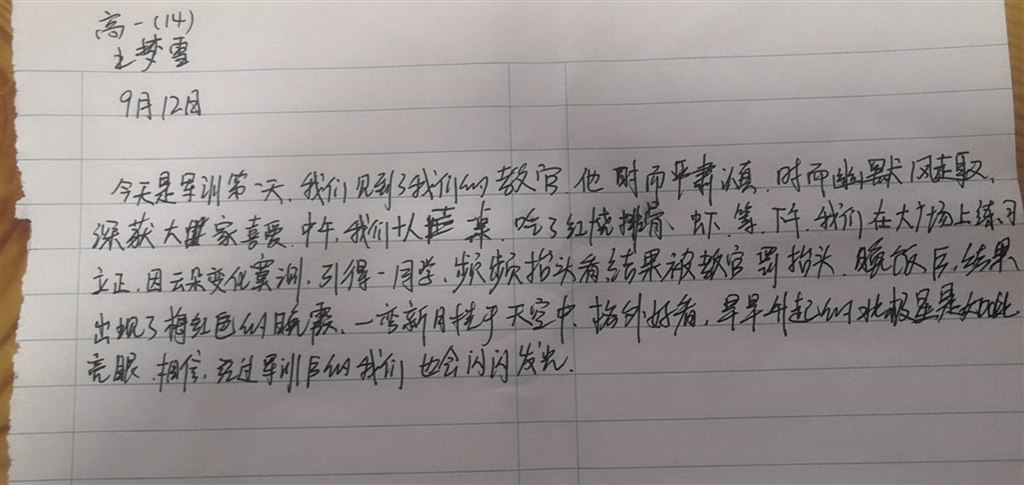 高一(14)
王梦雪
9月12日
今天是军训第一天,我们见到了我们的教官,他时而严肃,时而幽默风趣,
深获大家喜爱.中午,我们十人一桌,吃了红烧排骨、虾等.下午,我们在大广场上练习
立正,因云朵变化莫测,引得一同学,频频抬头看结果被教官罚抬头.晚饭后,结果
出现了梅红色的晚霞,一弯新月挂于天空中,格外好看,早早升起的北极星是如此
亮眼.相信,经过军训后的我们也会闪闪发光.